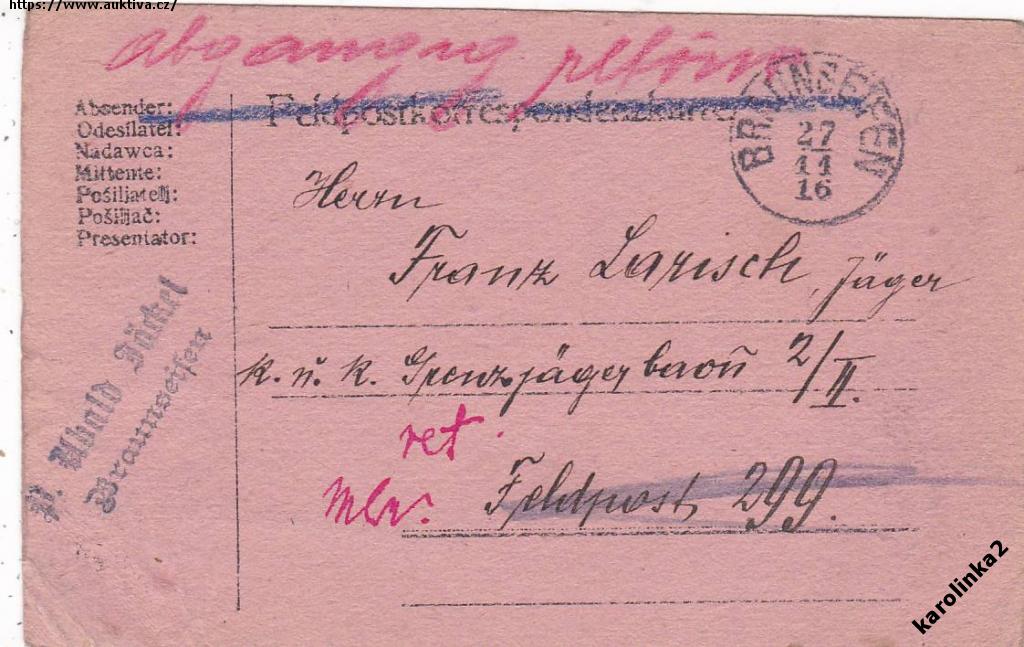 https://www.auktiva.cz/
abgängig retour
Absender:
Odesílatel:
Nadawca:
Mittente:
Pošiljatelj:
Pošiljač:
Presentator:
Feldpostkorrespondenzkarte
BRAUNSEIFEN
27
11
16
Herrn
Franz Larisch, Jäger
k. u. k. Grenzjägerbaon 2/II.
ret.
Feldpost 299.
P. Ubald Jäckel
Braunseifen
karolinka2